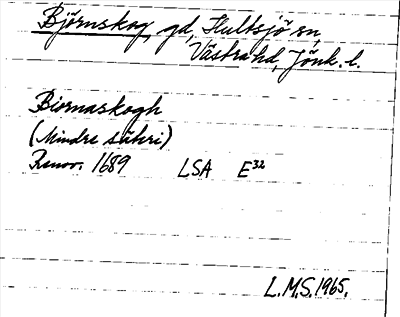 Björnskog, gd, Hultsjö sn,
Västra hd, Jönk. l.
Biornaskogh
(Mindre säteri)
Renov. 1689 LSA E32
L.M.S. 1965.